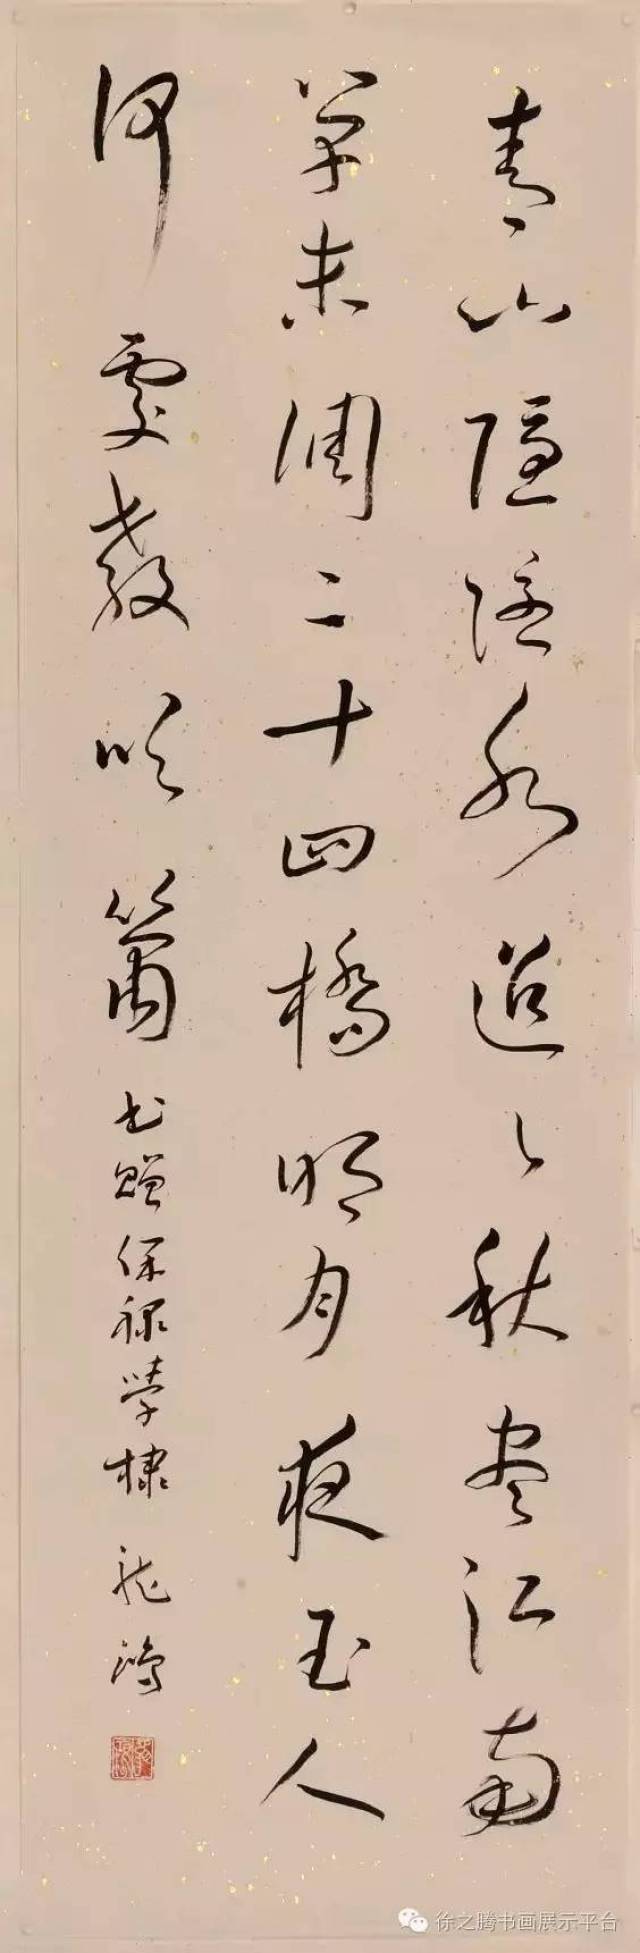 青山隱隱水迢〻秋盡江南
草未凋二十四橋明月夜玉人
何處教吹簫 書贈保祿學棣 龍鴻
徐之腾书画展示平台